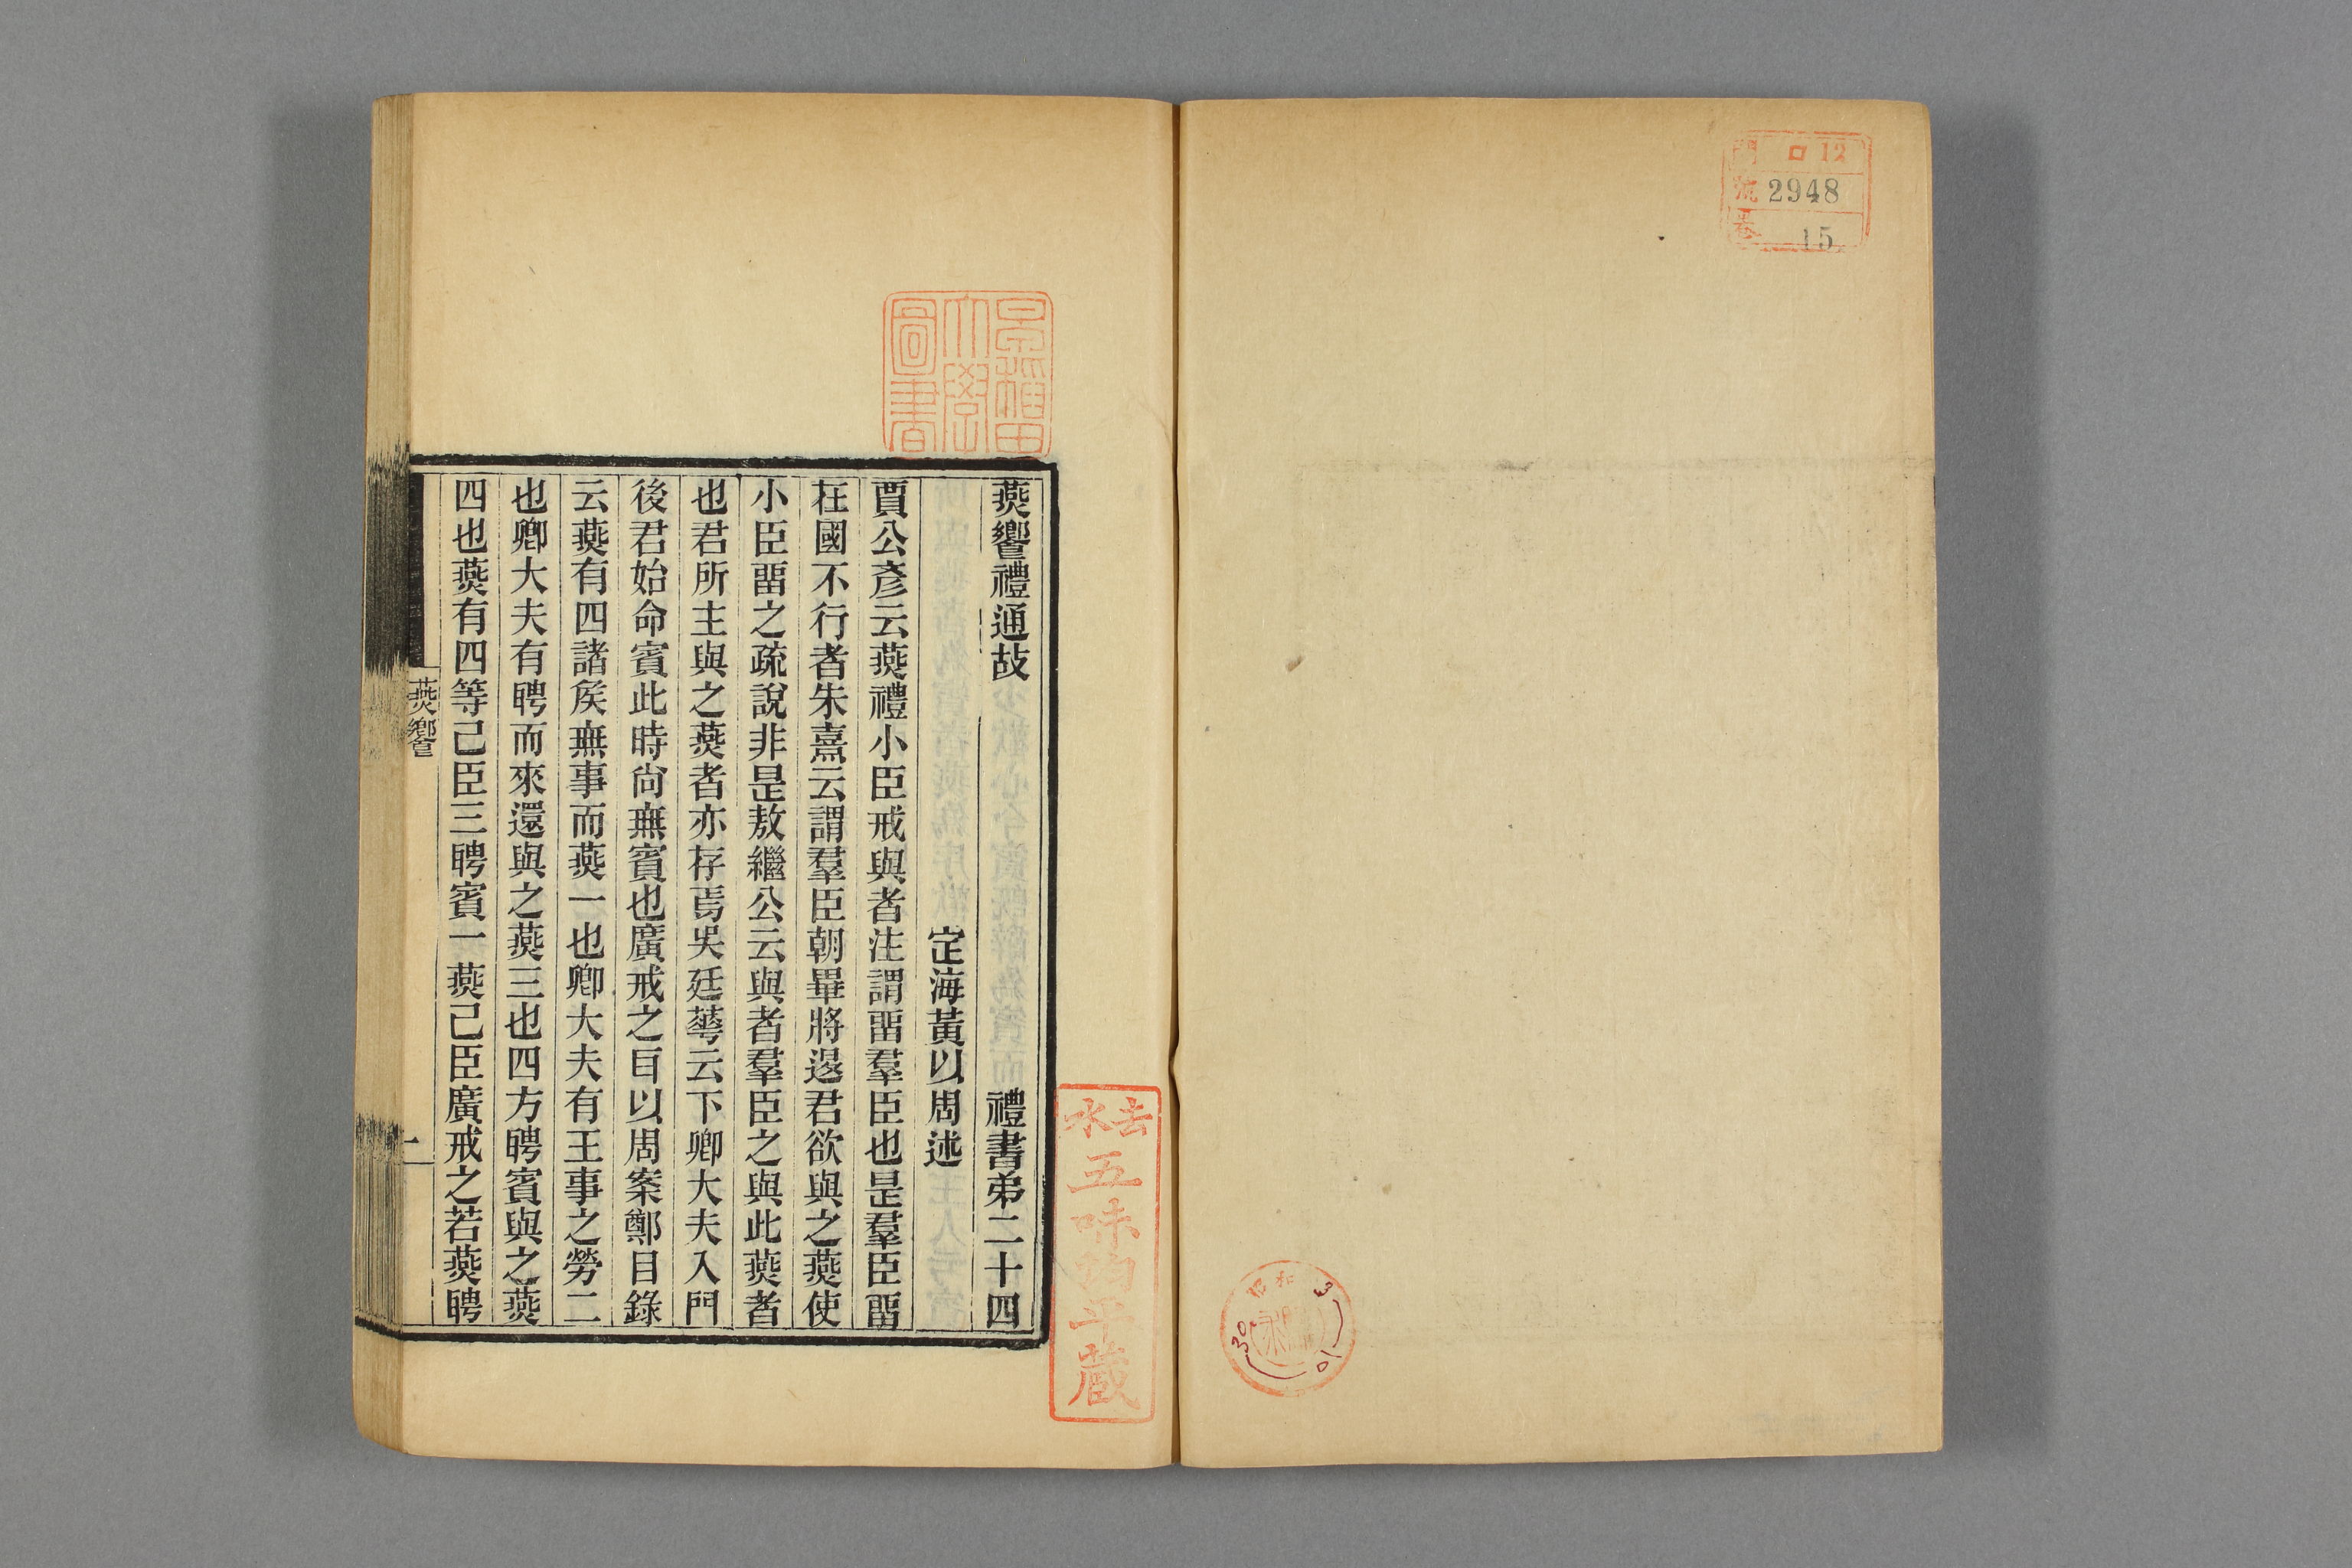 門 ロ12
號 2948
卷 15
昭和
30
3
10
早稻田
大學
圖書
去水
五味均平藏
燕饗禮通故 禮書弟二十四
定海黃以周述
賈公彥云燕禮小臣戒與者注謂畱羣臣也是羣臣畱
在國不行者朱熹云謂羣臣朝畢將退君欲與之燕使
小臣畱之疏說非是敖繼公云與者羣臣之與此燕者
也君所主與之燕者亦存焉吳廷華云下卿大夫入門
後君始命賓此時尙無賓也廣戒之目以周案鄭目錄
云燕有四諸矦無事而燕一也卿大夫有王事之勞二
也卿大夫有聘而來還與之燕三也四方聘賓與之燕
四也燕有四等己臣三聘賓一燕己臣廣戒之若燕聘
燕饗
一